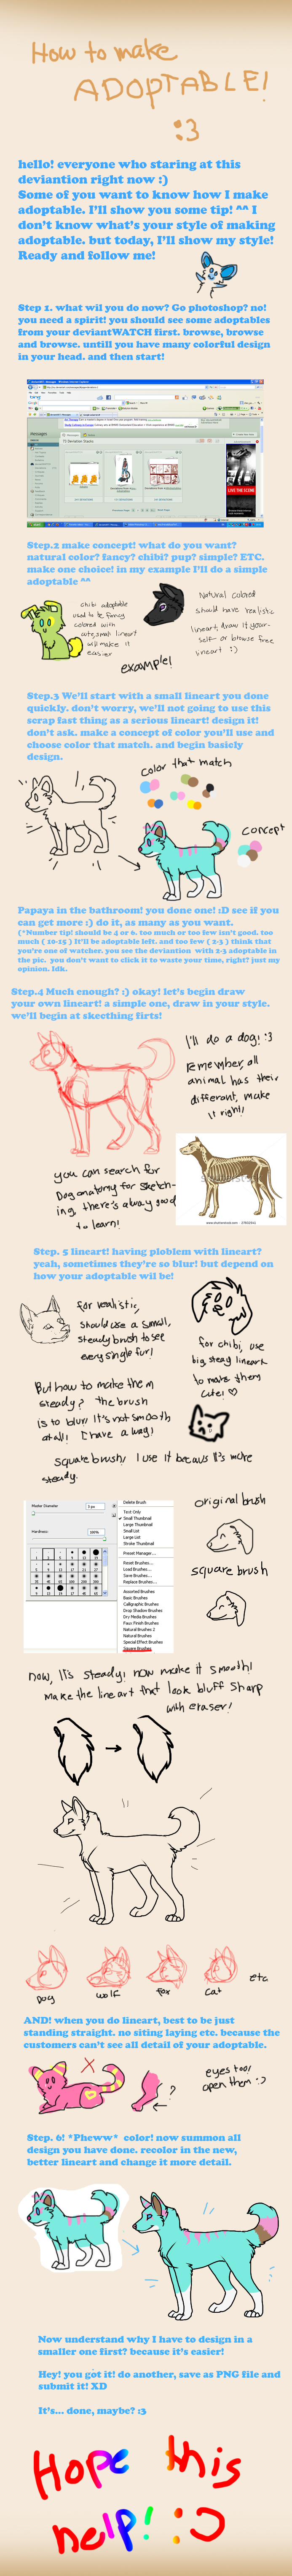 How to make
ADOPTABLE!
:3
hello! everyone who staring at this
deviantion right now :)
Some of you want to know how I make
adoptable. I'll show you some tip! ^^ I
don't know what's your style of making
adoptable. but today, I'll show my style!
Ready and follow me!
Step 1. what wil you do now? Go photoshop? no!
you need a spirit! you should see some adoptables
from your deviantWATCH first. browse, browse
and browse. untill you have many colorful design
in your head. and then start!
Messages
LIVE THE SCENE
Step.2 make concept! what do you want?
natural color? fancy? chibi? pup? simple? ETC.
make one choice! in my example I'll do a simple
adoptable ^^
chibi adoptable
used to be fancy
colored with
cute, small lineart
will make it
easier
Natural colored
should have realistic
lineart, draw it your-
self or browse free
lineart :)
example!
Step.3 We'll start with a small lineart you done
quickly. don't worry, we'll not going to use this
scrap fast thing as a serious lineart! design it!
don't ask. make a concept of color you'll use and
choose color that match. and begin basicly
design.
color that match
concept
Papaya in the bathroom! you done one! :D see if you
can get more :) do it, as many as you want.
(*Number tip! should be 4 or 6. too much or too few isn't good. too
much ( 10-15 ) It'll be adoptable left. and too few ( 2-3 ) think that
you're one of watcher. you see the deviantion  with 2-3 adoptable in
the pic.  you don't want to click it to waste your time, right? just my
opinion. Idk.
Step.4 Much enough? :) okay! let's begin draw
your own lineart! a simple one, draw in your style.
we'll begin at skecthing firts!
I'll do a dog! :3
Remember, all
animal has their
different, make
it right!
www.shutterstock.com
you can search for
Dog anatomy for sketch-
ing, there's alway good
to learn!
Step. 5 lineart! having ploblem with lineart?
yeah, sometimes they're so blur! but depend on
how your adoptable wil be!
for realistic,
should use a small,
steady brush to see
every single fur!
for chibi, use
big steady lineart
to make them
cute! ♡
But how to make them
steady? the brush
is to blur! It's not smooth
at all! I have a way!
square brush! I use it because It's more
steady.
Master Diameter
3 px
Hardness:
100%
Delete Brush
Text Only
Small Thumbnail
Large Thumbnail
Small List
Large List
Stroke Thumbnail
Preset Manager...
Reset Brushes...
Load Brushes...
Save Brushes...
Replace Brushes...
Assorted Brushes
Basic Brushes
Calligraphic Brushes
Drop Shadow Brushes
Dry Media Brushes
Faux Finish Brushes
Natural Brushes 2
Natural Brushes
Special Effect Brushes
Square Brushes
original brush
square brush
now, It's steady! now make it smooth!
make the lineart that look bluff sharp
with eraser!
Dog
wolf
fox
cat
etc
AND! when you do lineart, best to be just
standing straight. no siting laying etc. because the
customers can't see all detail of your adoptable.
?
eyes too!
open them :)
Step. 6! *Pheww*  color! now summon all
design you have done. recolor in the new,
better lineart and change it more detail.
Now understand why I have to design in a
smaller one first? because it's easier!
Hey! you got it! do another, save as PNG file and
submit it! XD
It's... done, maybe? :3
Hope this
help! :)